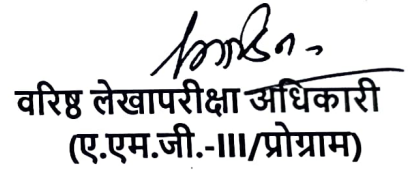 वरिष्ठ लेखापरीक्षा अधिकारी
(ए.एम.जी.-III/प्रोग्राम)